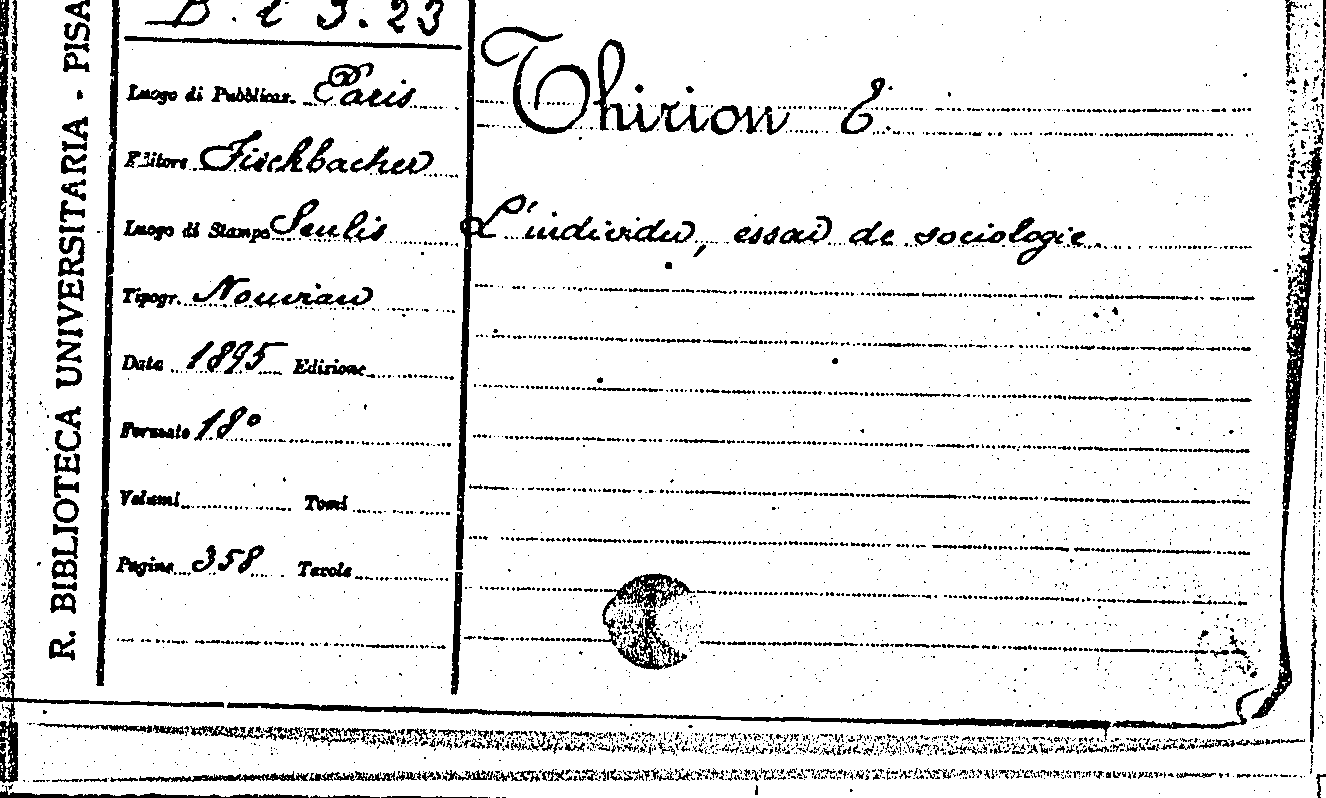 R. BIBLIOTECA UNIVERSITARIA - PISA
B. l 3. 23
Luogo di Pubblicaz. Paris
Editore Fischbacher
Luogo di Stampa Senlis
Tipogr. Nouvian
Data 1895 Edizione
Formato 18°
Volumi Tomi
Pagine 358 Tavole
Thirion E.
L'individu, essai de sociologie.